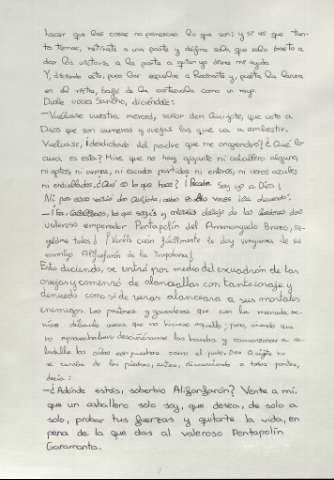 hacer que las cosas no parezcan lo que son; y si es que tan-
to temes, retírate a una parte y déjame solo, que solo basto a
dar la victoria a la parte a quien yo diere mi ayuda.
Y, diciendo esto, puso las espuelas a Rocinante y, puesta la lanza
en el ristre, bajó de la costezuela como un rayo.
Diole voces Sancho, diciéndole:
—Vuélvase vuestra merced, señor don Quijote, que voto a
Dios que son carneros y ovejas las que va a embestir.
Vuélvase, ¡desdichado del padre que me engendró! ¿Qué lo
cura es esta? Mire que no hay gigante ni caballero alguno,
ni gatos, ni armas, ni escudos partidos ni enteros, ni veros azules
ni endiablados. ¿Qué es lo que hace? ¡Pecador soy yo a Dios!
Ni por esas volvió don Quijote; antes en altas voces iba diciendo:
—¡Ea, caballeros, los que seguís y militáis debajo de las banderas del
valeroso emperador Pentapolín del Arremangado Brazo, se-
guidme todos! ¡Veréis cuán fácilmente le doy venganza de su
enemigo Alifanfarón de la Trapobana!
Esto diciendo, se entró por medio del escuadrón de las
ovejas y comenzó de alanceallas con tanto coraje y
denuedo como si de veras alanceara a sus mortales
enemigos. Los pastores y ganaderos que con la manada ve-
nían dábanle voces que no hiciese aquello; pero, viendo que
no aprovechaban, desciñéronse las hondas y comenzaron a sa-
ludalle los oídos con piedras como el puño. Don Quijote no
se curaba de las piedras, antes, discurriendo a todas partes,
decía:
—¿Adónde estás, soberbio Alifanfarón? Vente a mí,
que un caballero solo soy, que desea, de solo a
solo, probar tus fuerzas y quitarte la vida, en
pena de la que das al valeroso Pentapolín
Garamanta.